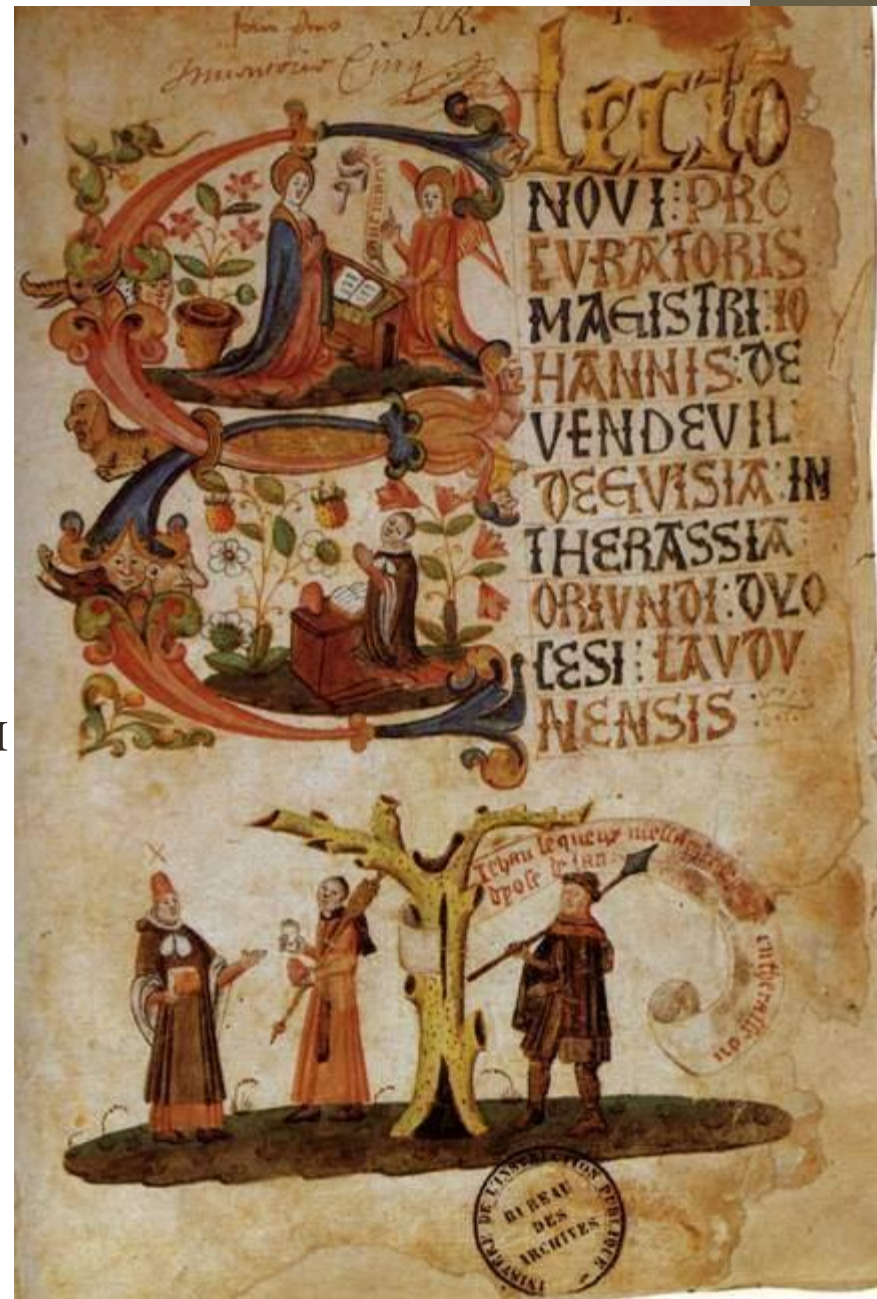 J.R.
Electō
NOVI : PRO
CVRATORIS
MAGISTRI : IO
HANNIS : DE
VENDEVIL
DEGVISIA : IN
THERASSIA
ORIVNDI : DYO
CESI : LAVDV
NENSIS
Jehan lequeux
MINISTÈRE DE L'INSTRUCTION PUBLIQUE
BUREAU
DES
ARCHIVES